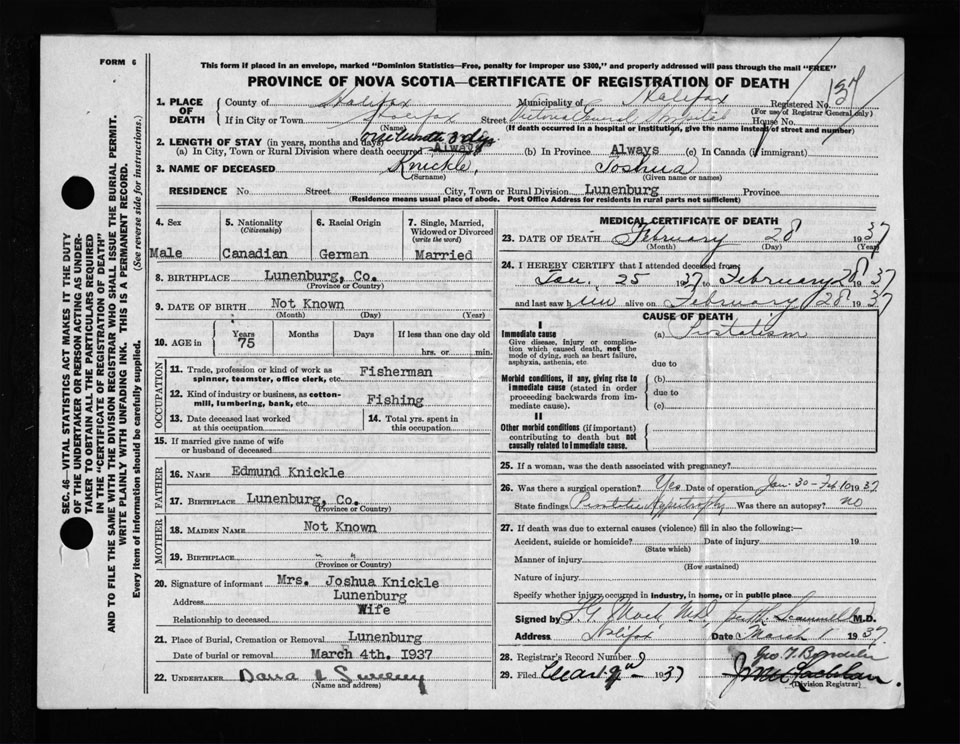 FORM 6
This form if placed in an envelope, marked "Dominion Statistics—Free, penalty for improper use $300," and properly addressed will pass through the mail "FREE"
PROVINCE OF NOVA SCOTIA—CERTIFICATE OF REGISTRATION OF DEATH
1. PLACE OF DEATH
County of Halifax Municipality of Halifax Registered No. 137
(For use of Registrar General only)
If in City or Town Halifax Street Victoria General Hospital House No.
(Name) (If death occurred in a hospital or institution, give the name instead of street and number)
2. LENGTH OF STAY (in years, months and days) one month 3 days
(a) In City, Town or Rural Division where death occurred Always (b) In Province Always (c) In Canada (if immigrant)
3. NAME OF DECEASED Knickle, Joshua
(Surname) (Given name or names)
RESIDENCE No. Street City, Town or Rural Division Lunenburg Province
(Residence means usual place of abode. Post Office Address for residents in rural parts not sufficient)
4. Sex Male
5. Nationality (Citizenship) Canadian
6. Racial Origin German
7. Single, Married, Widowed or Divorced (write the word) Married
8. BIRTHPLACE Lunenburg, Co.
(Province or County)
9. DATE OF BIRTH Not Known
(Month) (Day) (Year)
10. AGE in Years 75 Months Days If less than one day old hrs. or min.
OCCUPATION
11. Trade, profession or kind of work as spinner, teamster, office clerk, etc. Fisherman
12. Kind of industry or business, as cotton-mill, lumbering, bank, etc. Fishing
13. Date deceased last worked at this occupation
14. Total yrs. spent in this occupation
15. If married give name of wife or husband of deceased
FATHER
16. NAME Edmund Knickle
17. BIRTHPLACE Lunenburg, Co.
(Province or County)
MOTHER
18. MAIDEN NAME Not Known
19. BIRTHPLACE " "
(Province or Country)
20. Signature of informant Mrs. Joshua Knickle
Address Lunenburg
Relationship to deceased Wife
21. Place of Burial, Cremation or Removal Lunenburg
Date of burial or removal March 4th. 1937
22. UNDERTAKER Dana L Sweeny
(Name and address)
MEDICAL CERTIFICATE OF DEATH
23. DATE OF DEATH February 28 1937
(Month) (Day) (Year)
24. I HEREBY CERTIFY that I attended deceased from
Jan. 25 1937 to February 28 1937
and last saw him alive on February 28 1937
CAUSE OF DEATH
I
Immediate cause (a) Prostatism
Give disease, injury or complication which caused death, not the mode of dying, such as heart failure, asphyxia, asthenia, etc
due to
Morbid conditions, if any, giving rise to immediate cause (stated in order proceeding backwards from immediate cause).
(b)
due to
(c)
II
Other morbid conditions (if important) contributing to death but not causally related to immediate cause.
25. If a woman, was the death associated with pregnancy?
26. Was there a surgical operation? Yes Date of operation Jan. 30 - Feb 10 1937
State findings Prostatic Hypertrophy Was there an autopsy? no
27. If death was due to external causes (violence) fill in also the following:—
Accident, suicide or homicide? Date of injury 19
(State which)
Manner of injury
(How sustained)
Nature of injury
Specify whether injury occurred in industry, in home, or in public place
Signed by F.G. Mack M.D. M.D.
Address Halifax Date March 1 1937
28. Registrar's Record Number
29. Filed 1937
(Division Registrar)
SEC. 46—VITAL STATISTICS ACT MAKES IT THE DUTY
OF THE UNDERTAKER OR PERSON ACTING AS UNDER-
TAKER TO OBTAIN ALL THE PARTICULARS REQUIRED
IN THE "CERTIFICATE OF REGISTRATION OF DEATH"
AND TO FILE THE SAME WITH THE DIVISION REGISTRAR WHO SHALL ISSUE THE BURIAL PERMIT.
WRITE PLAINLY WITH UNFADING INK. THIS IS A PERMANENT RECORD.
Every item of information should be carefully supplied. (See reverse side for instructions.)